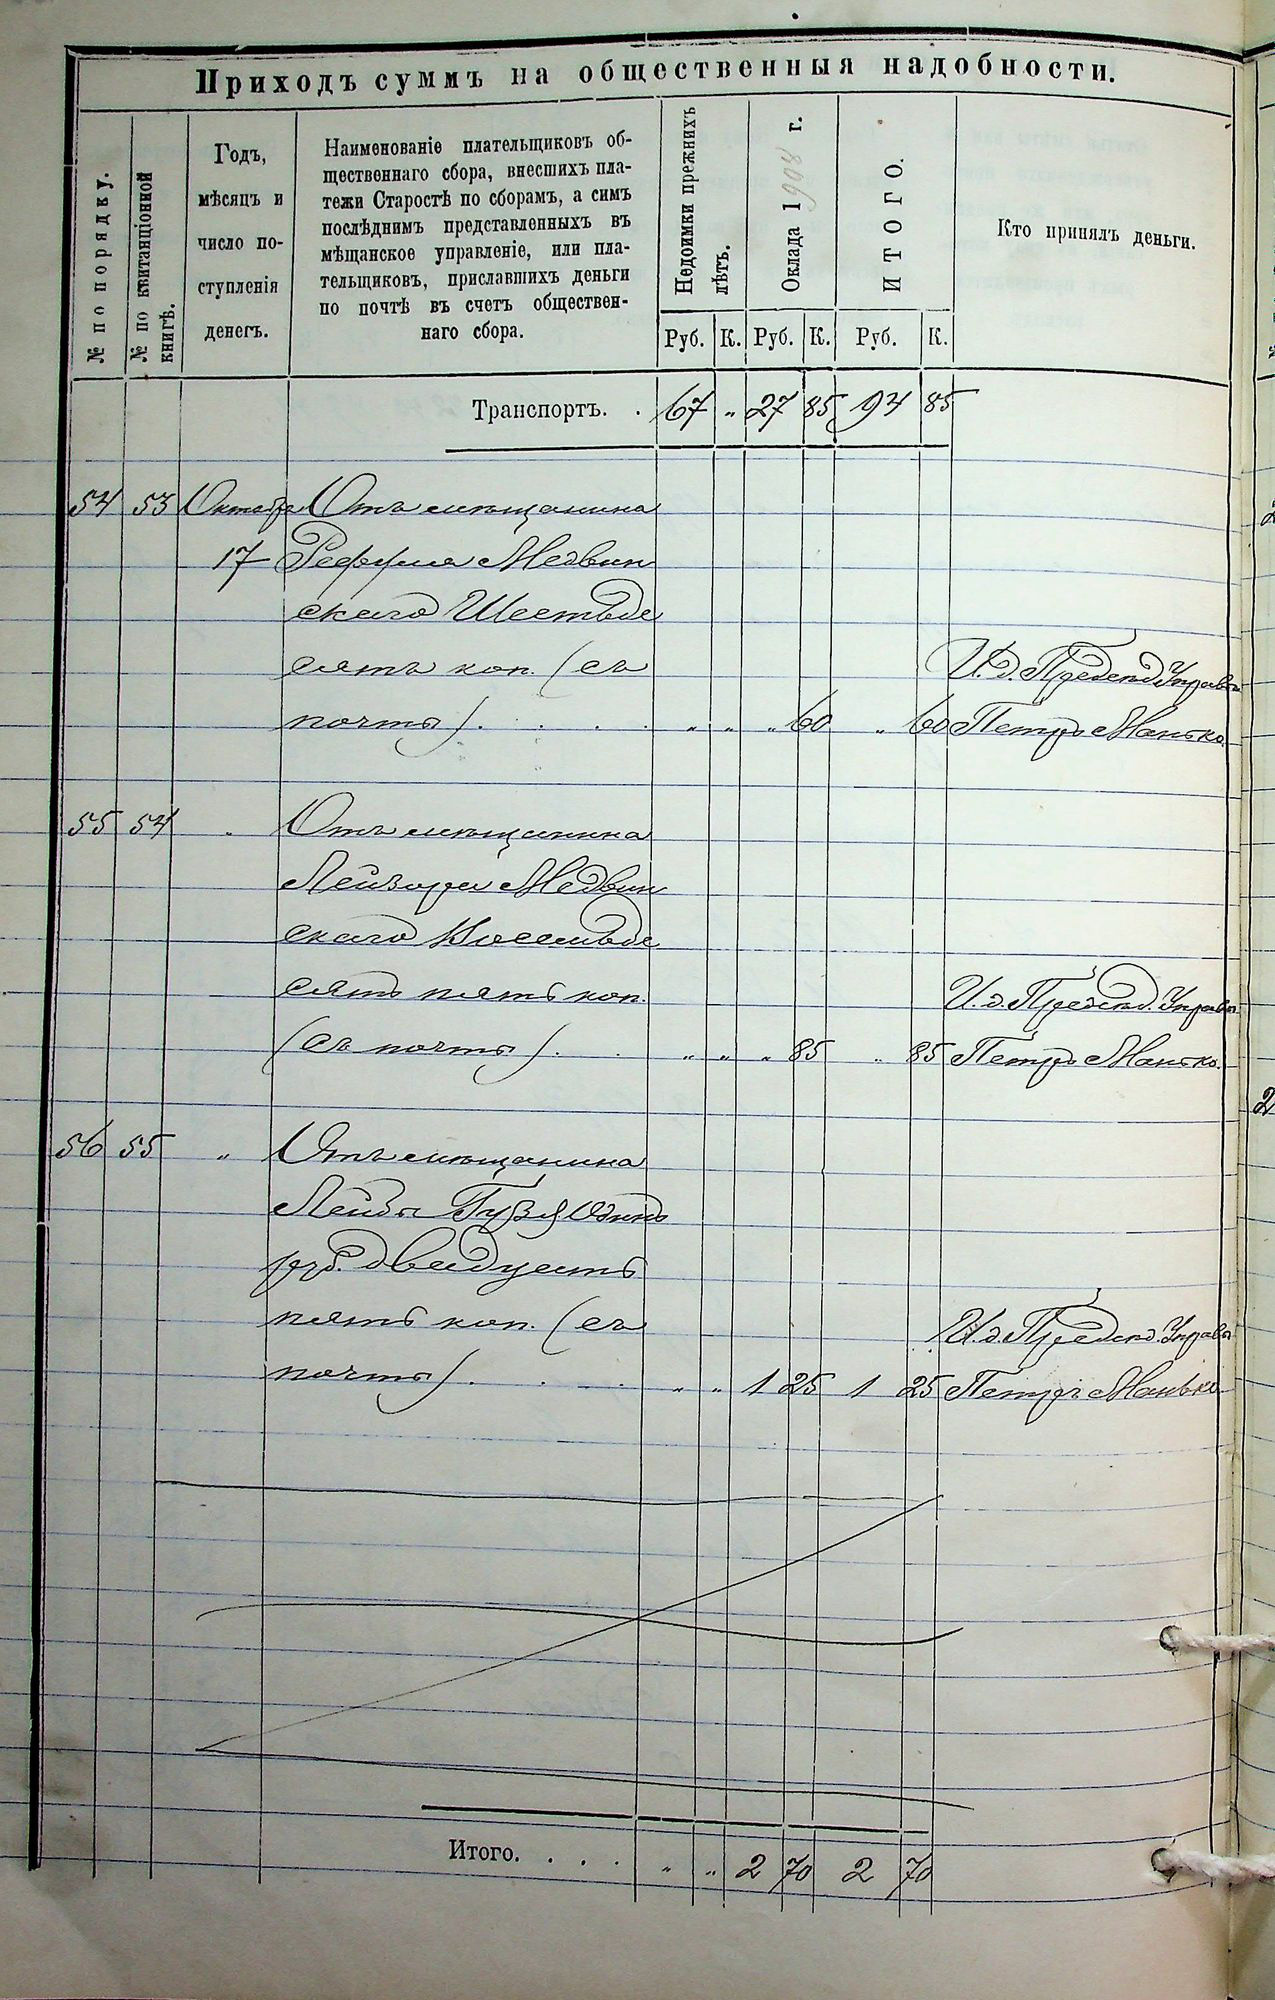 Приходъ суммъ на общественныя надобности.
№ по порядку.
№ по квитанціонной
книгѣ.
Годъ,
мѣсяцъ и
число по-
ступленія
денегъ.
Наименованіе плательщиковъ об-
щественнаго сбора, внесшихъ пла-
тежи Старостѣ по сборамъ, а симъ
послѣднимъ представленныхъ въ
мѣщанское управленіе, или пла-
тельщиковъ, приславшихъ деньги
по почтѣ въ счетъ обществен-
наго сбора.
Недоимки прежнихъ
лѣтъ.
Оклада 1908 г.
ИТОГО.
Кто принялъ деньги.
Руб. К. Руб. К. Руб. К.
Транспортъ. . 67 „ 27 85 94 85
54 53 Октября Отъ мѣщанина
17 Медвин
скаго Шестьде
сятъ коп. (съ И. д. Предсѣд. Управы
почты) . . . . „ „ „ 60 „ 60 Петръ Манько
55 54 „ Отъ мѣщанина
Лейзера Медвин
скаго Восемьде
сятъ пять коп. И. д. Предсѣд. Управы
(съ почты) . . „ „ „ 85 „ 85 Петръ Манько.
56 55 „ Отъ мѣщанина
Лейбы Гузя Одинъ
руб. двадцать
пять коп. (съ И. д. Предсѣд. Управы
почты) . . . . „ „ 1 25 1 25 Петръ Манько
Итого. . . . „ „ 2 70 2 70